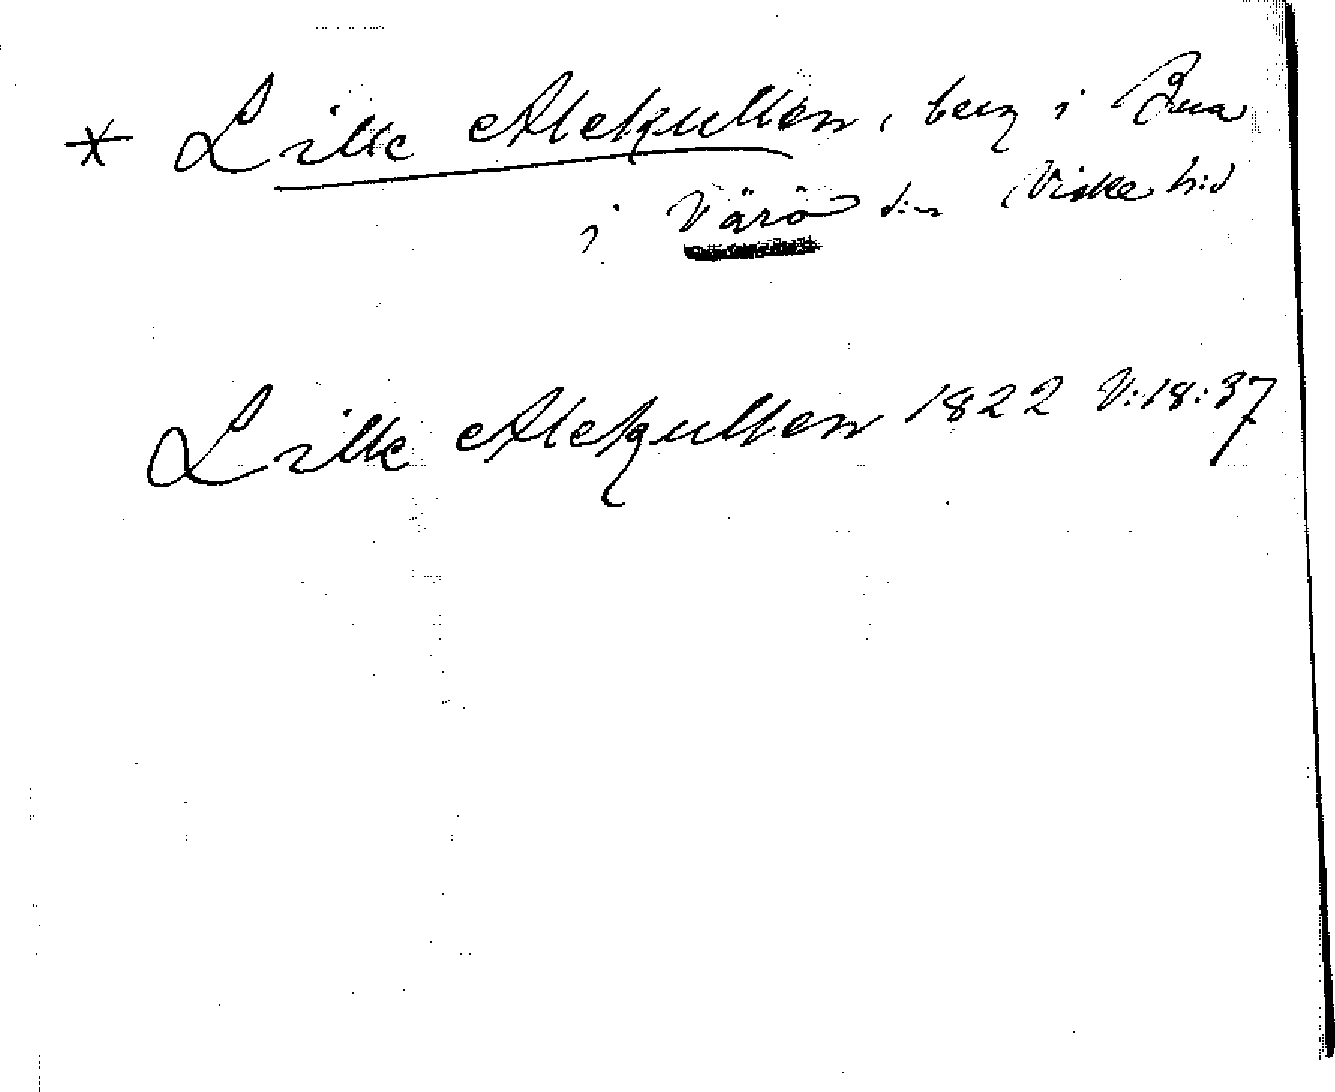 * Lille Alekullen, berg i Bua
i Värö s:n Viske h:d
Lille Alekullen 1822 V:18:37